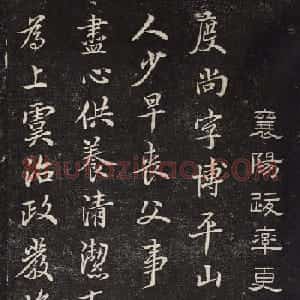 襄陽跋率更
度尚字博平山
人少早喪父事
盡心供養清潔
為上虞治政嚴